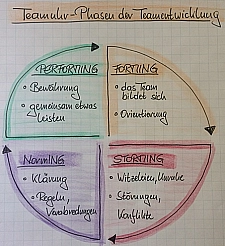 Teamuhr-Phasen der Teamentwicklung
PERFORMING
• Bewährung
• gemeinsam etwas
leisten
FORMING
• das Team
bildet sich
• Orientierung
NORMING
• Klärung
• Regeln,
Vereinbarungen
STORMING
• Witzeleien, Unruhe
• Störungen,
Konflikte